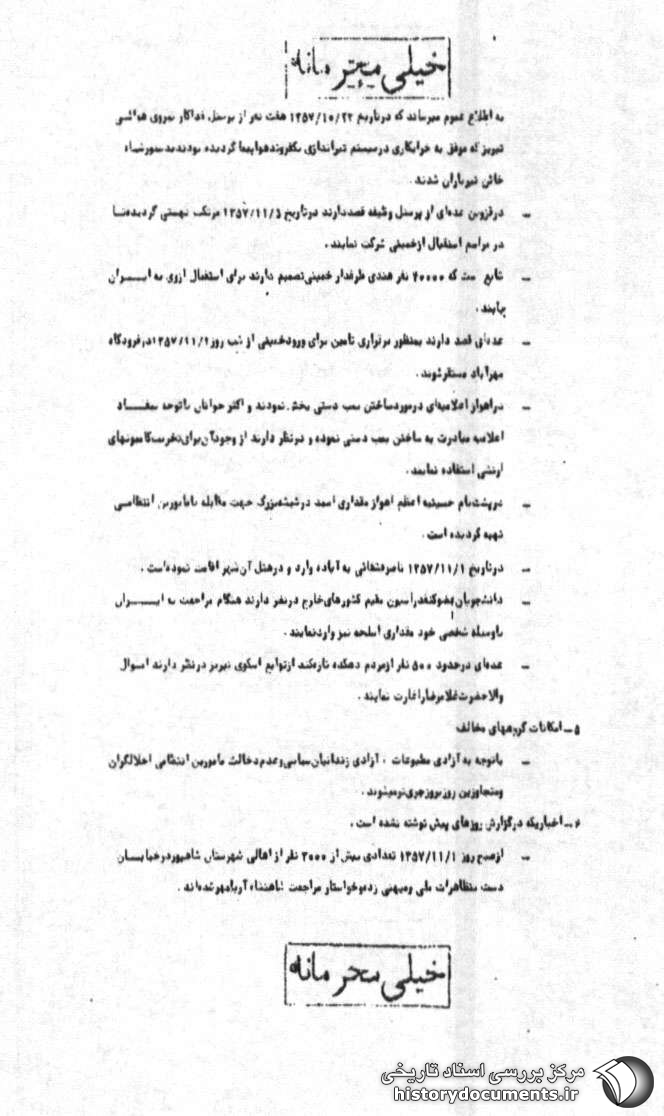 خیلی محرمانه
به اطلاع عموم میرساند که درتاریخ ۱۳۵۷/۱۰/۲۲ هفت نفر از پرسنل فداکار نیروی هوائی
تبریز که موفق به خرابکاری درسیستم تیراندازی یکفروندهواپیما گردیده بودند بدستورشاه
خائن تیرباران شدند .
- درقزوین عده‌ای از پرسنل وظیفه قصددارند درتاریخ ۱۳۵۷/۱۱/۵ مرتکب نهستی گردیده‌تا
در مراسم استقبال ازخمینی شرکت نمایند .
- شایع است که ۴۰۰۰۰ نفر هندی طرفدار خمینی‌تصمیم دارند برای استقبال ازوی به ایران
بیایند .
- عده‌ای قصد دارند بمنظور برقراری تامین برای ورودخمینی از شب روز ۱۳۵۷/۱۱/۱درفرودگاه
مهرآباد مستقرشوند .
- دراهواز اعلامیه‌ای درموردساختن بمب دستی پخش‌نمودند و اکثر جوانان باتوجه بمفاد
اعلامیه مبادرت به ساختن بمب دستی نموده و درنظر دارند از وجودآن‌برای‌تخریب‌کامیونهای
ارتشی استفاده نمایند .
- درپشت‌بام حسینیه اعظم اهواز مقداری اسید درشیشه‌بزرگ جهت مقابله بامأمورین انتظامی
تهیه گردیده است .
- درتاریخ ۱۳۵۷/۱۱/۱ ناصرقشقائی به آباده وارد و درهتل آن‌شهر اقامت نموده‌است .
- دانشجویان‌عضوکنفدراسیون مقیم کشورهای‌خارج درنظر دارند هنگام مراجعت به ایران
باوسیله شخصی خود مقداری اسلحه نیز واردنمایند .
- عده‌ای درحدود ۵۰۰ نفر ازمردم دهکده تازه‌کند ازتوابع اسکوی تبریز درنظر دارند اموال
والاحضرت‌غلامرضاراغارت نمایند .
۵ـ امکانات گروههای مخالف
- باتوجه به آزادی مطبوعات ، آزادی زندانیان‌سیاسی‌وعدم‌دخالت مأمورین انتظامی اخلالگران
ومتجاوزین روزبروزجری‌ترمیشوند .
۶ـ اخباریکه درگزارش روزهای پیش نوشته نشده است .
- ازصبح روز ۱۳۵۷/۱۱/۱ تعدادی بیش از ۳۰۰۰ نفر از اهالی شهرستان شاهپوردرخیابان
دست بتظاهرات ملی ومیهنی زده‌وخواستار مراجعت شاهنشاه آریامهرشده‌اند .
خیلی محرمانه
مرکز بررسی اسناد تاریخی
historydocuments.ir